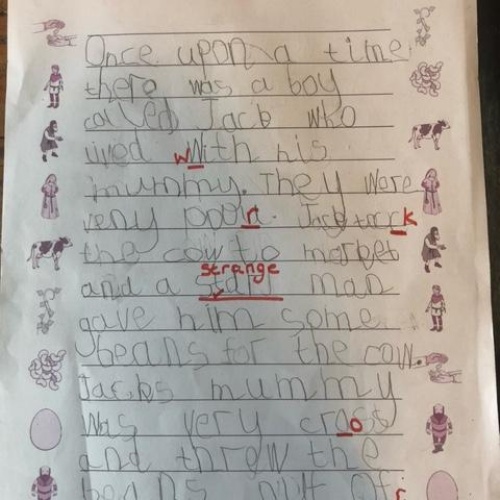 Once upon a time
there was a boy
called Jack who
lived with his
mummy. They were
very poor. Jack
the cow to market
strange
and a man
gave him some
beans for the cow.
Jacks mummy
was very cross
and threw the
beans out of